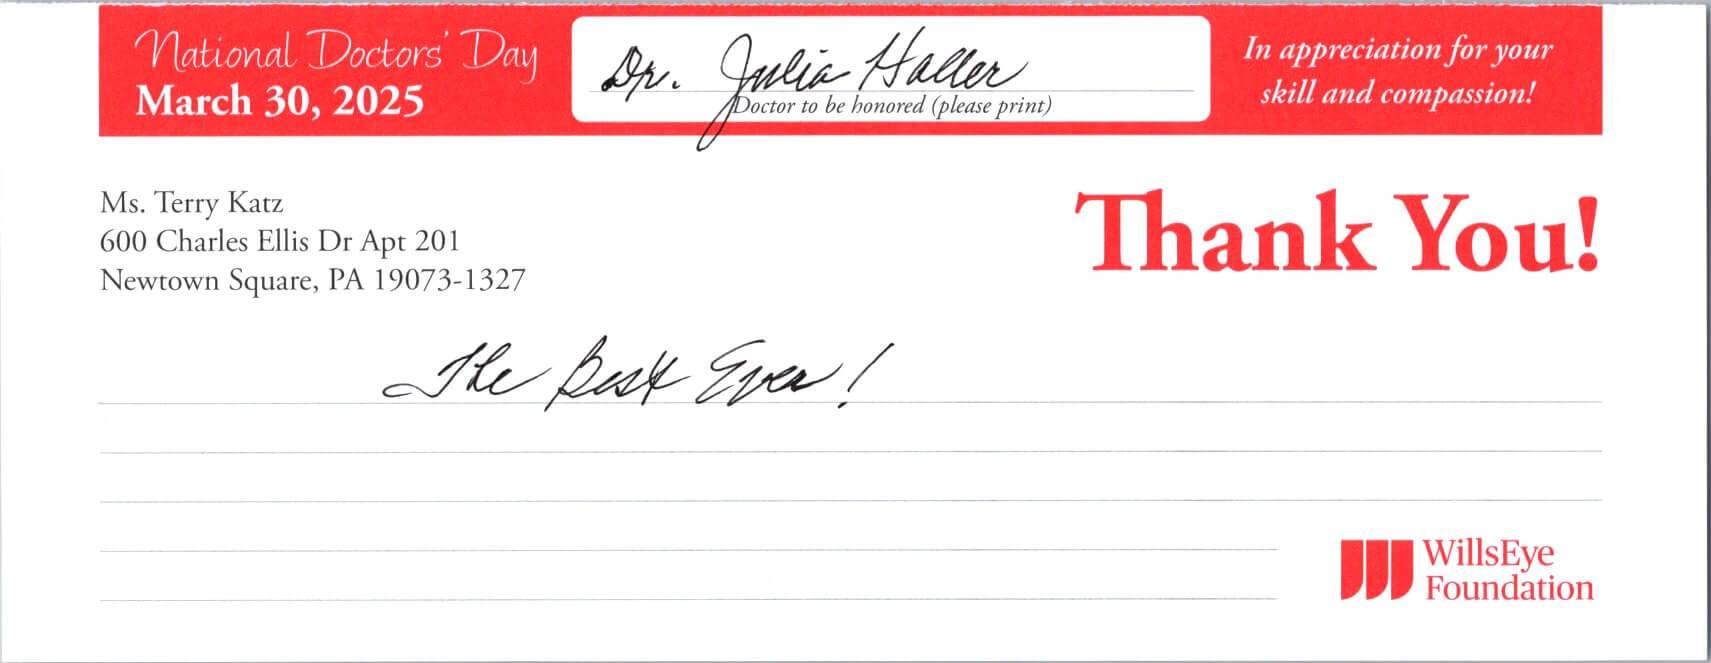 National Doctors' Day
March 30, 2025
Dr. Julia Haller
Doctor to be honored (please print)
In appreciation for your
skill and compassion!
Ms. Terry Katz
600 Charles Ellis Dr Apt 201
Newtown Square, PA 19073-1327
Thank You!
The Best Ever!
WillsEye
Foundation